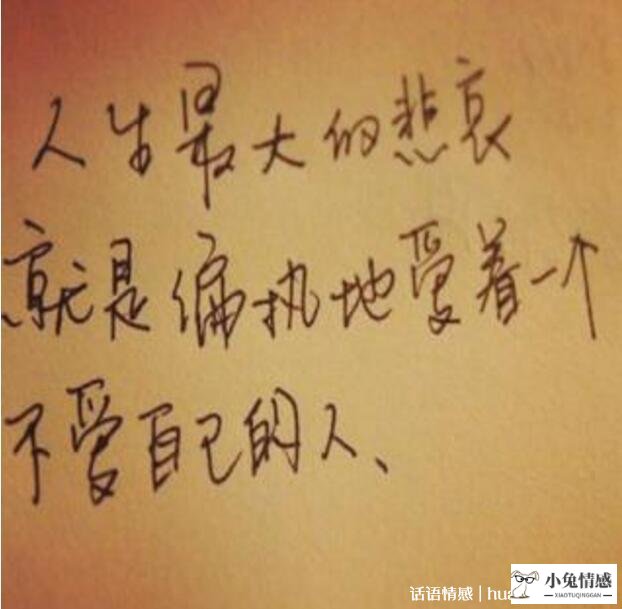 人生最大的悲哀
就是偏执地爱着一个
不爱自己的人、
话语情感 | hua
小兔情感
XIAOTUQINGGAN